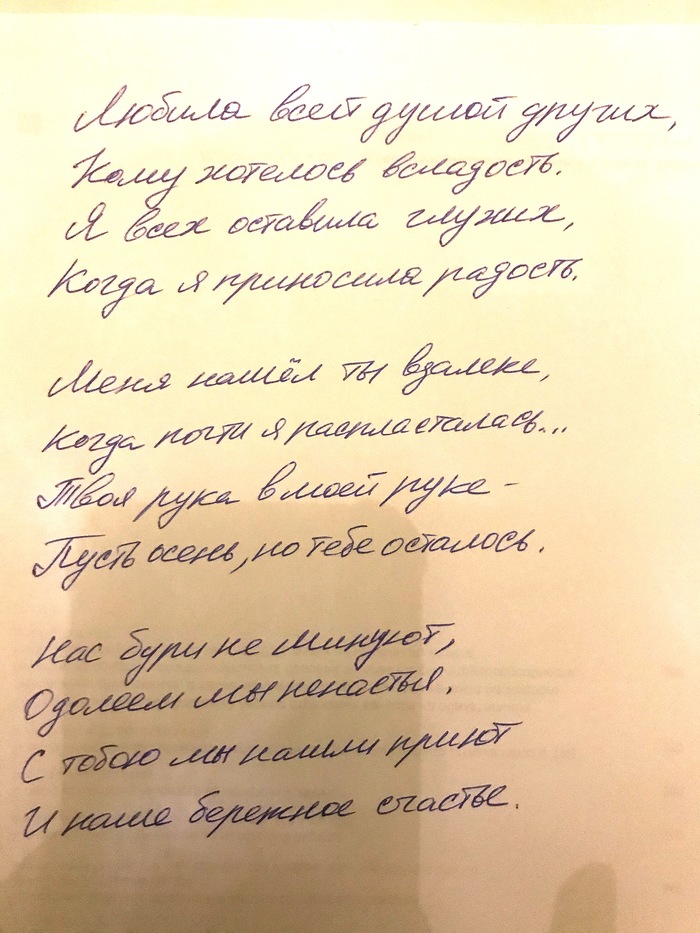 Любила всей душой других,
Кому хотелось всладость.
Я всех оставила глухих,
Когда я приносила радость.
Меня нашёл ты вдалеке,
Когда почти я распласталась...
Твоя рука в моей руке -
Пусть осень, но тебе осталось.
Нас бури не минуют,
Одолеем мы ненастья.
С тобою мы нашли приют
И наше бережное счастье.